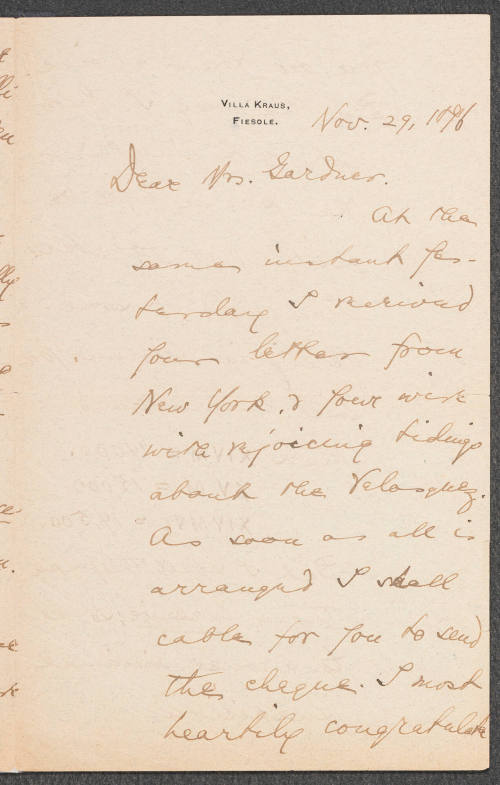 VILLA KRAUS,
FIESOLE.
Nov. 29, 1896
Dear Mrs. Gardner.
At the
same instant yes-
terday I received
your letter from
New York, & your wire
with rejoicing tidings
about the Velasquez.
As soon as all is
arranged I shall
cable for you to send
the cheque. I most
heartily congratulate